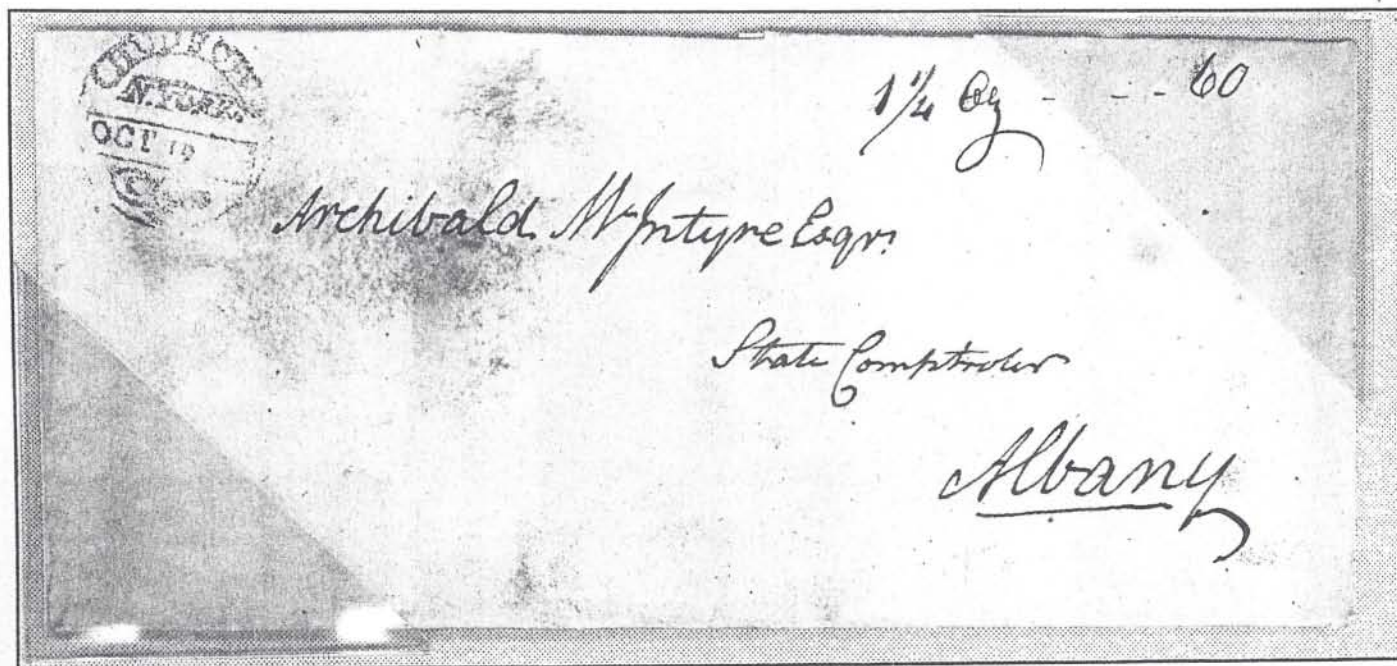 N.YORK.
OCT 19
1 1/4 oz - - - 60
Archibald McIntyre Esqr.
State Comptroler
Albany